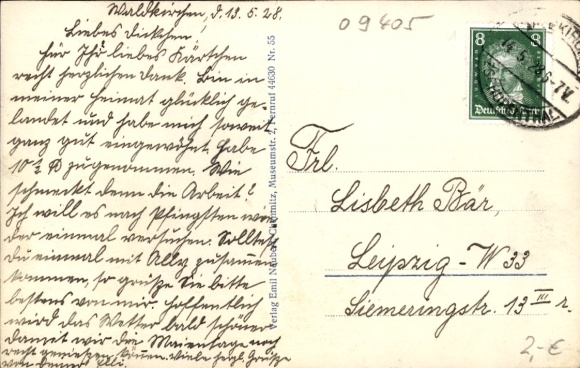 Waldkirchen, d. 13.5.28.
Liebes Dickchen!
Für Ihr liebes Kärtchen
recht herzlichen Dank. Bin in
meiner Heimat glücklich ge-
landet und habe mich soweit
ganz gut eingewöhnt. Habe
10 ½ ℔ zugenommen. Wie
schmeckt denn die Arbeit?
Ich will es nach Pfingsten wie-
der einmal versuchen. Solltest
Du einmal mit Ally zusammen
kommen, so grüße Sie bitte
bestens von mir. Hoffentlich
wird das Wetter bald schöner
damit wir die Maientage noch
recht genießen können. Viele herzl. Grüße
von
Verlag Emil Neubert, Chemnitz, Museumstr. 2, Fernruf 44630 Nr. 55
09405
8 8
Deutsches Reich
Frl.
Lisbeth Bär,
Leipzig-W 33
Siemeringstr. 13 III r.
2,-€